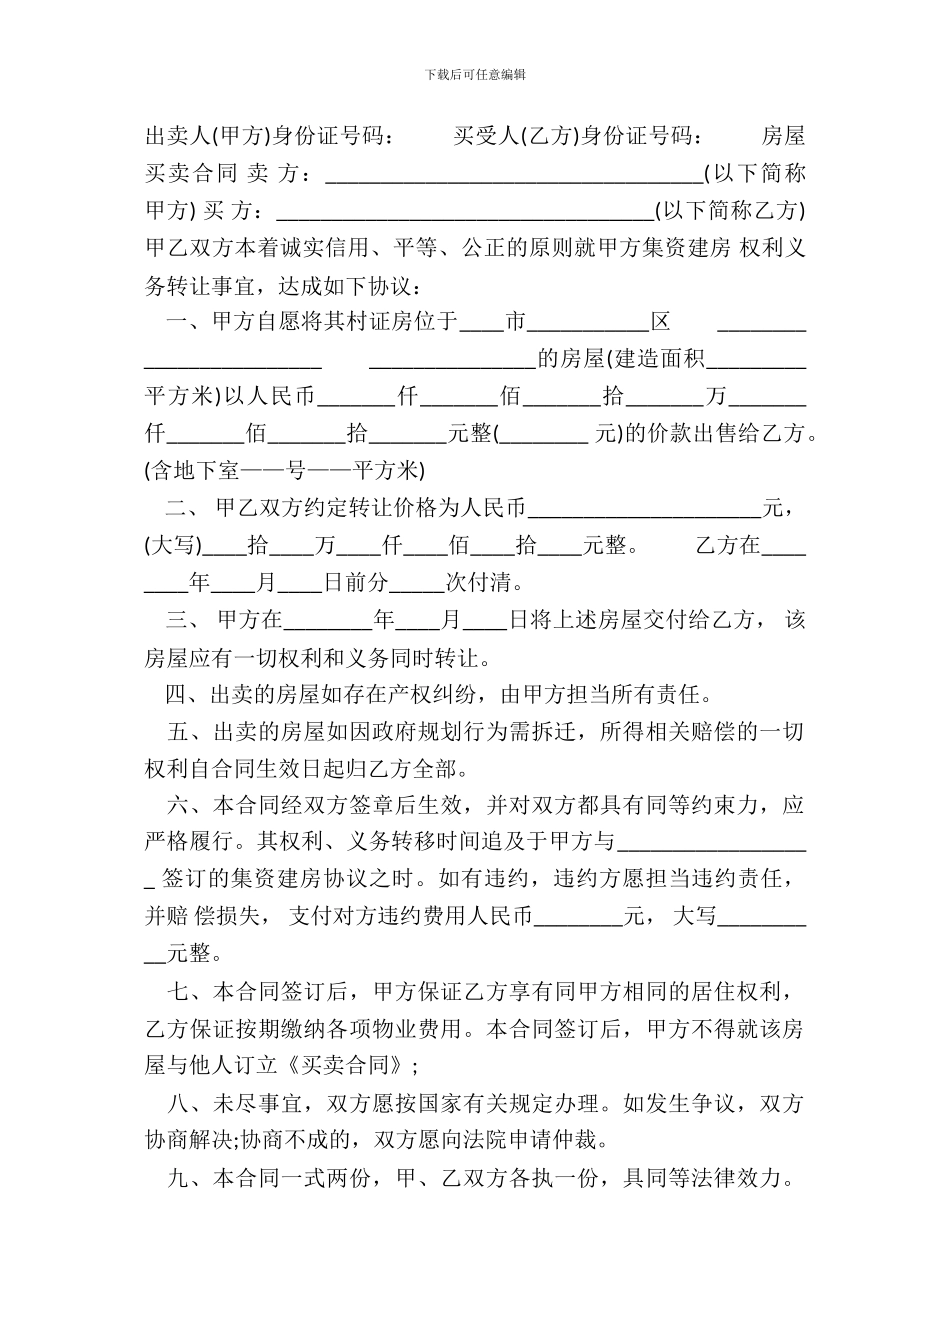 下载后可任意编辑
出卖人(甲方)身份证号码： 买受人(乙方)身份证号码： 房屋
买卖合同 卖 方：__________________________________(以下简称
甲方) 买 方：__________________________________(以下简称乙方)
甲乙双方本着诚实信用、平等、公正的原则就甲方集资建房 权利义
务转让事宜，达成如下协议：
一、甲方自愿将其村证房位于____市___________区 ________
________________ _______________的房屋(建造面积_________
平方米)以人民币_______仟_______佰_______拾_______万_______
仟_______佰_______拾_______元整(________ 元)的价款出售给乙方。
(含地下室——号——平方米)
二、 甲乙双方约定转让价格为人民币_____________________元，
(大写)____拾____万____仟____佰____拾____元整。 乙方在____
____年____月____日前分_____次付清。
三、 甲方在________年____月____日将上述房屋交付给乙方， 该
房屋应有一切权利和义务同时转让。
四、出卖的房屋如存在产权纠纷，由甲方担当所有责任。
五、出卖的房屋如因政府规划行为需拆迁，所得相关赔偿的一切
权利自合同生效日起归乙方全部。
六、本合同经双方签章后生效，并对双方都具有同等约束力，应
严格履行。其权利、义务转移时间追及于甲方与_________________
_ 签订的集资建房协议之时。如有违约，违约方愿担当违约责任，
并赔 偿损失， 支付对方违约费用人民币________元， 大写________
__元整。
七、本合同签订后，甲方保证乙方享有同甲方相同的居住权利，
乙方保证按期缴纳各项物业费用。本合同签订后，甲方不得就该房
屋与他人订立《买卖合同》;
八、未尽事宜，双方愿按国家有关规定办理。如发生争议，双方
协商解决;协商不成的，双方愿向法院申请仲裁。
九、本合同一式两份，甲、乙双方各执一份，具同等法律效力。